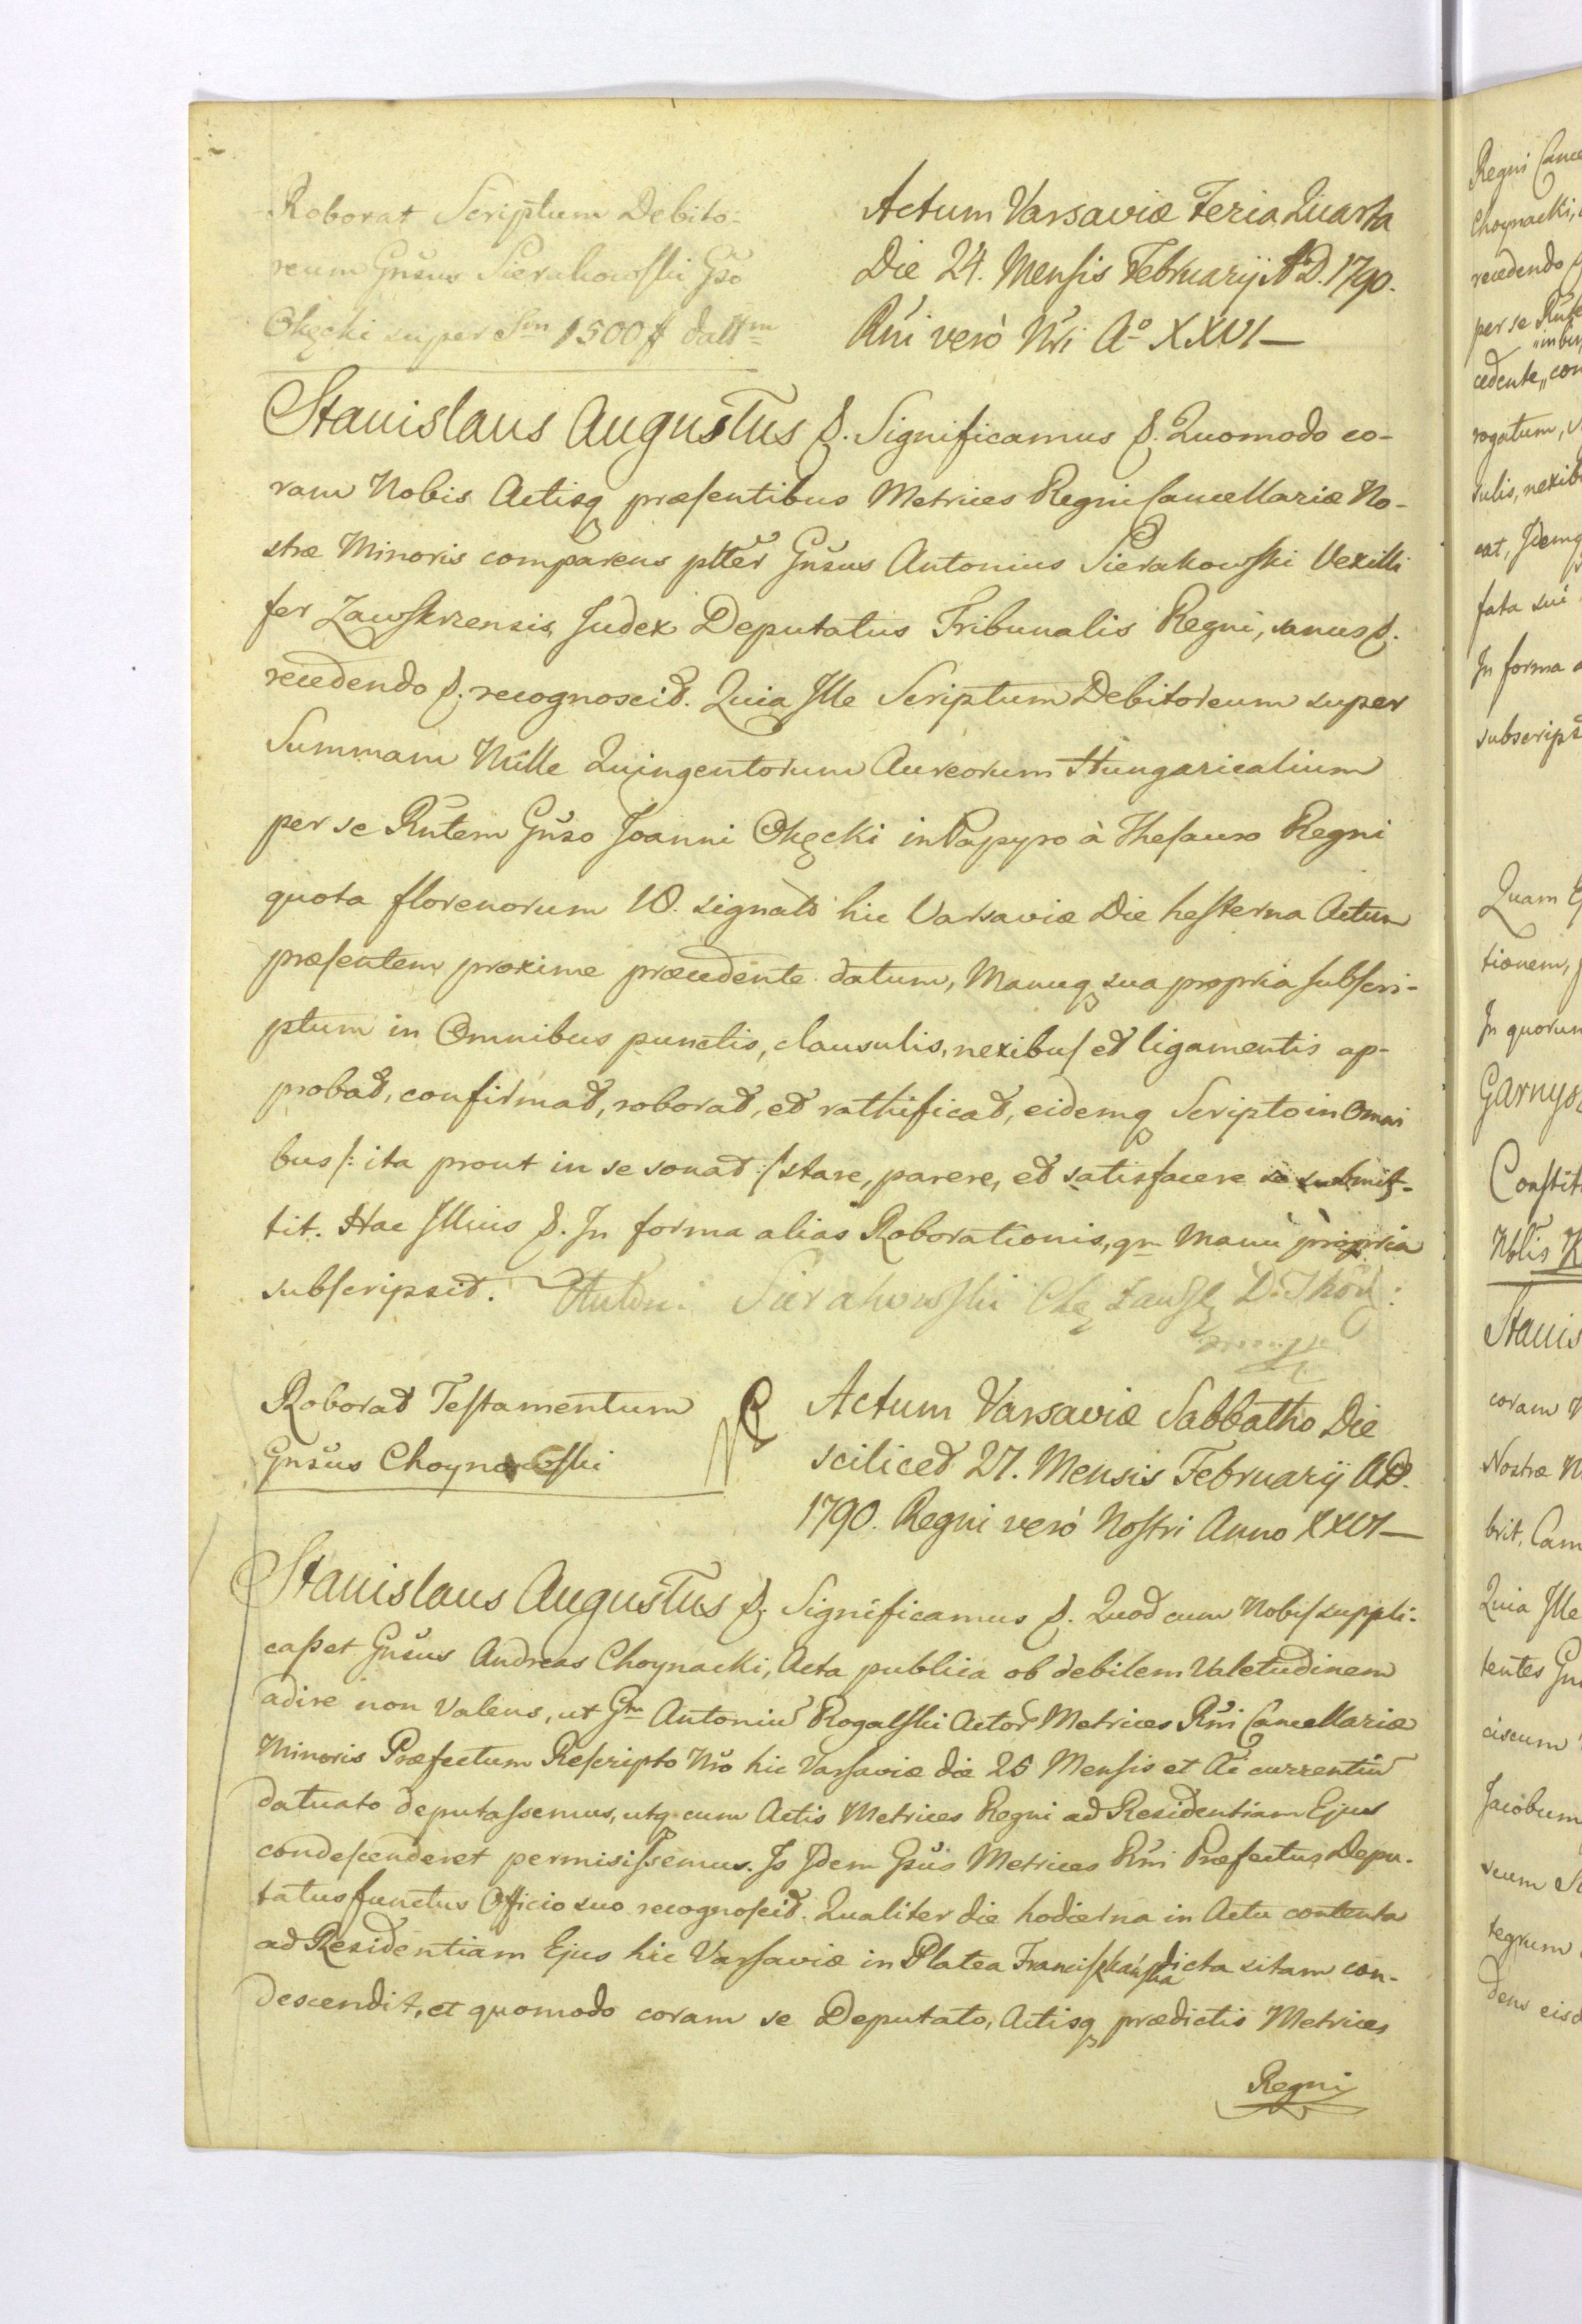 Roborat Scriptum Debito-
reum Gnsus Sierakowski Gso
Okęcki super Sm 1500 # datt m
Actum Varsaviæ Feria Quarta
Die 24. Mensis Februarij AD. 1790.
Rni verò Nri A° XXVI—
Stanislaus Augustus &. Significamus &. Quomodo co-
ram Nobis Actisq præsentibus Metrices Regni Cancellariæ No-
stræ Minoris comparens pltter Gnsus Antonius Sierakowski Vexilli
fer Zawskrzensis Judex Deputatus Tribunalis Regni, sanus &.
recedendo &. recognoscit. Quia Ille Scriptum Debitoreum super
Summam Mille Quingentorum Aureorum Hungaricalium
per se Rntem Gnso Joanni Okęcki in Papyro à Thesauro Regni
quota florenorum 10. signato hic Varsaviæ Die hesterna Actum
præsentem proxime præcedente datum, Manuq sua propria subscri-
ptum in Omnibus punctis, clausulis, nexibus et ligamentis ap-
probat, confirmat, roborat, et rathificat, eidemq Scripto in Omni
bus /: ita prout in se sonat :/ stare, parere, et satisfacere se submit-
tit. Hac Illius &. In forma alias Roborationis, qm Manu propria
subscripsit. Antoni Sierakowski Chą
Roborat Testamentum
Gnsus Choynowski
Actum Varsaviæ Sabbatho Die
scilicet 27. Mensis Februarij AD.
1790. Regni verò Nostri Anno XXVI—
Stanislaus Augustus &. Significamus &. Quod cum Nobis suppli-
casset Gnsus Andreas Choynacki, Acta publica ob debilem Valetudinem
adire non Valens, ut Gm Antoniu Rogalski Actor Metrices Rni Cancellariæ
Minoris Præfectum Rescripto Nro hic Varsaviæ die 25 Mensis et Ai currentiu
datuato deputassemus, utq cum Actis Metrices Regni ad Residentiam Ejus
condescenderet permisissemus. Is Idem Gsus Metrices Rni Præfectus Depu-
tatus functus Officio suo recognoscit. Qualiter die hodierna in Actu contenta
ad Residentiam Ejus hic Varsaviæ in Platea Franciszkańska dicta sitam con-
descendit, et quomodo coram se Deputato, Actisq prædictis Metrices
Regni